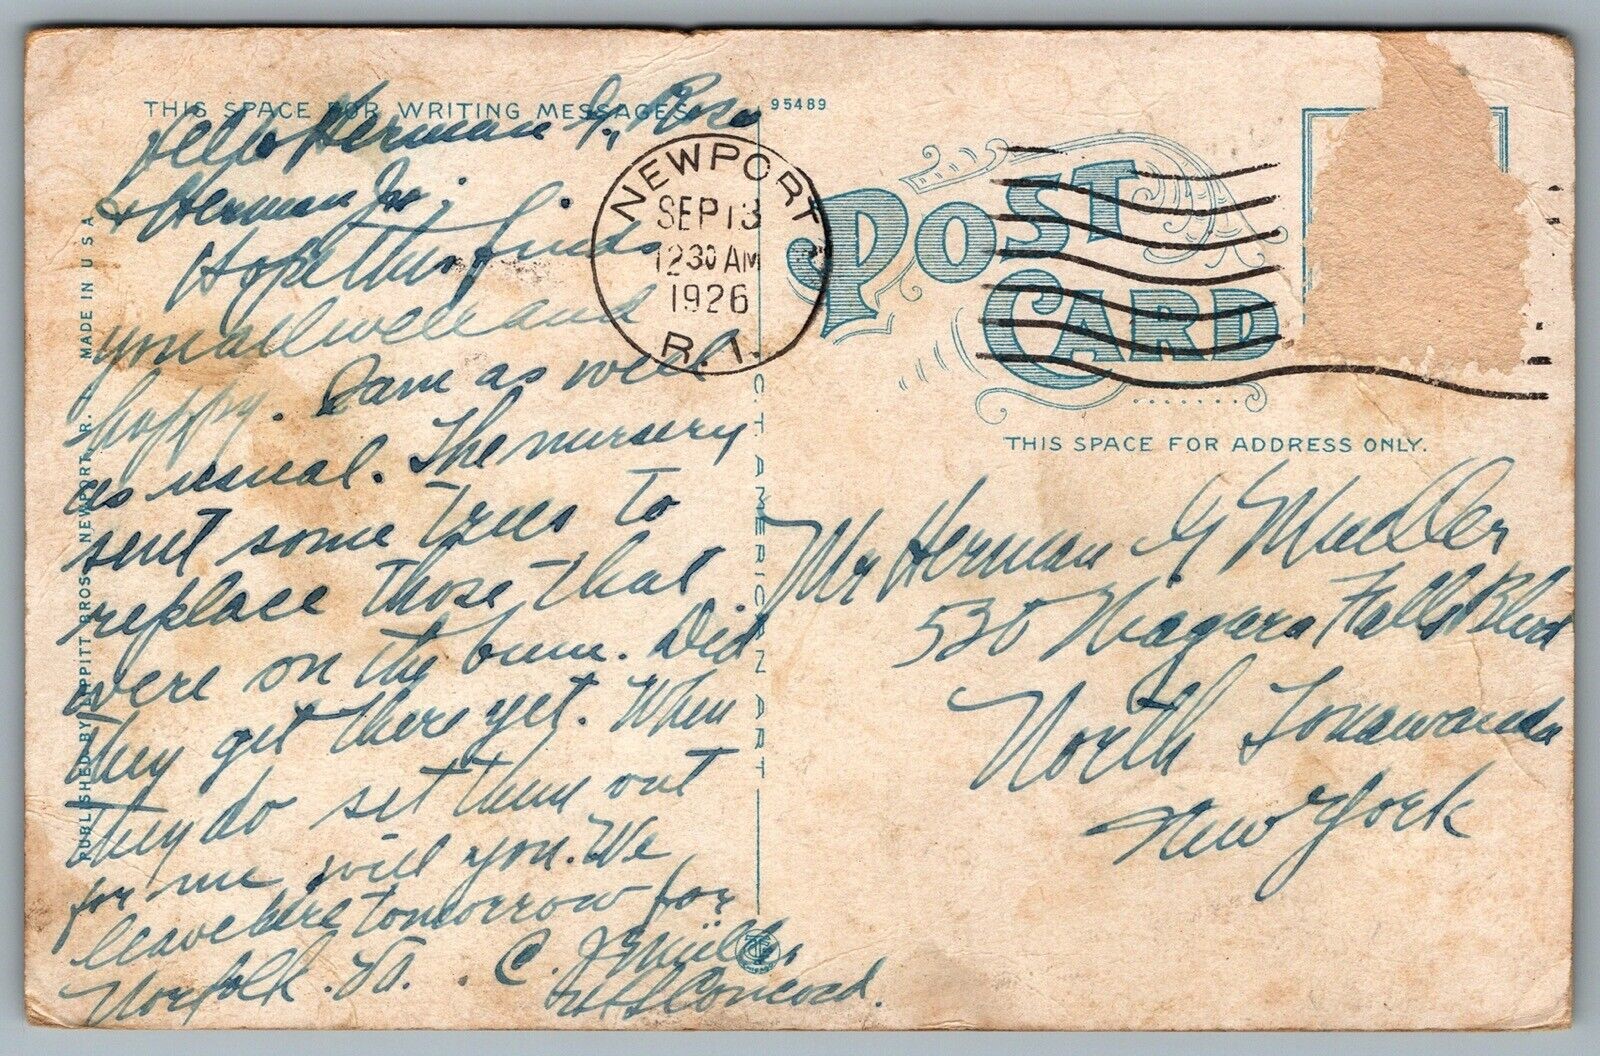 THIS SPACE FOR WRITING MESSAGES
Hello Herman G, Rose
& Herman Jr.
Hope this finds
you all well and
happy. I am as well
as usual. The nursery
sent some trees to
replace those that
were on the bum. Did
they get there yet. When
they do set them out
for me will you. We
leave here tomorrow for
Norfolk. Va. C. J. Müller
U.S.S. Concord.
PUBLISHED BY TIPPITT BROS. NEWPORT, R. I. MADE IN U S A
C.T. AMERICAN ART
NEWPORT
SEP 13
12 30 AM
1926
R.I.
95489
POST
CARD
THIS SPACE FOR ADDRESS ONLY.
Mr Herman G Mueller
530 Niagara Falls Blvd
North Tonawanda
New York